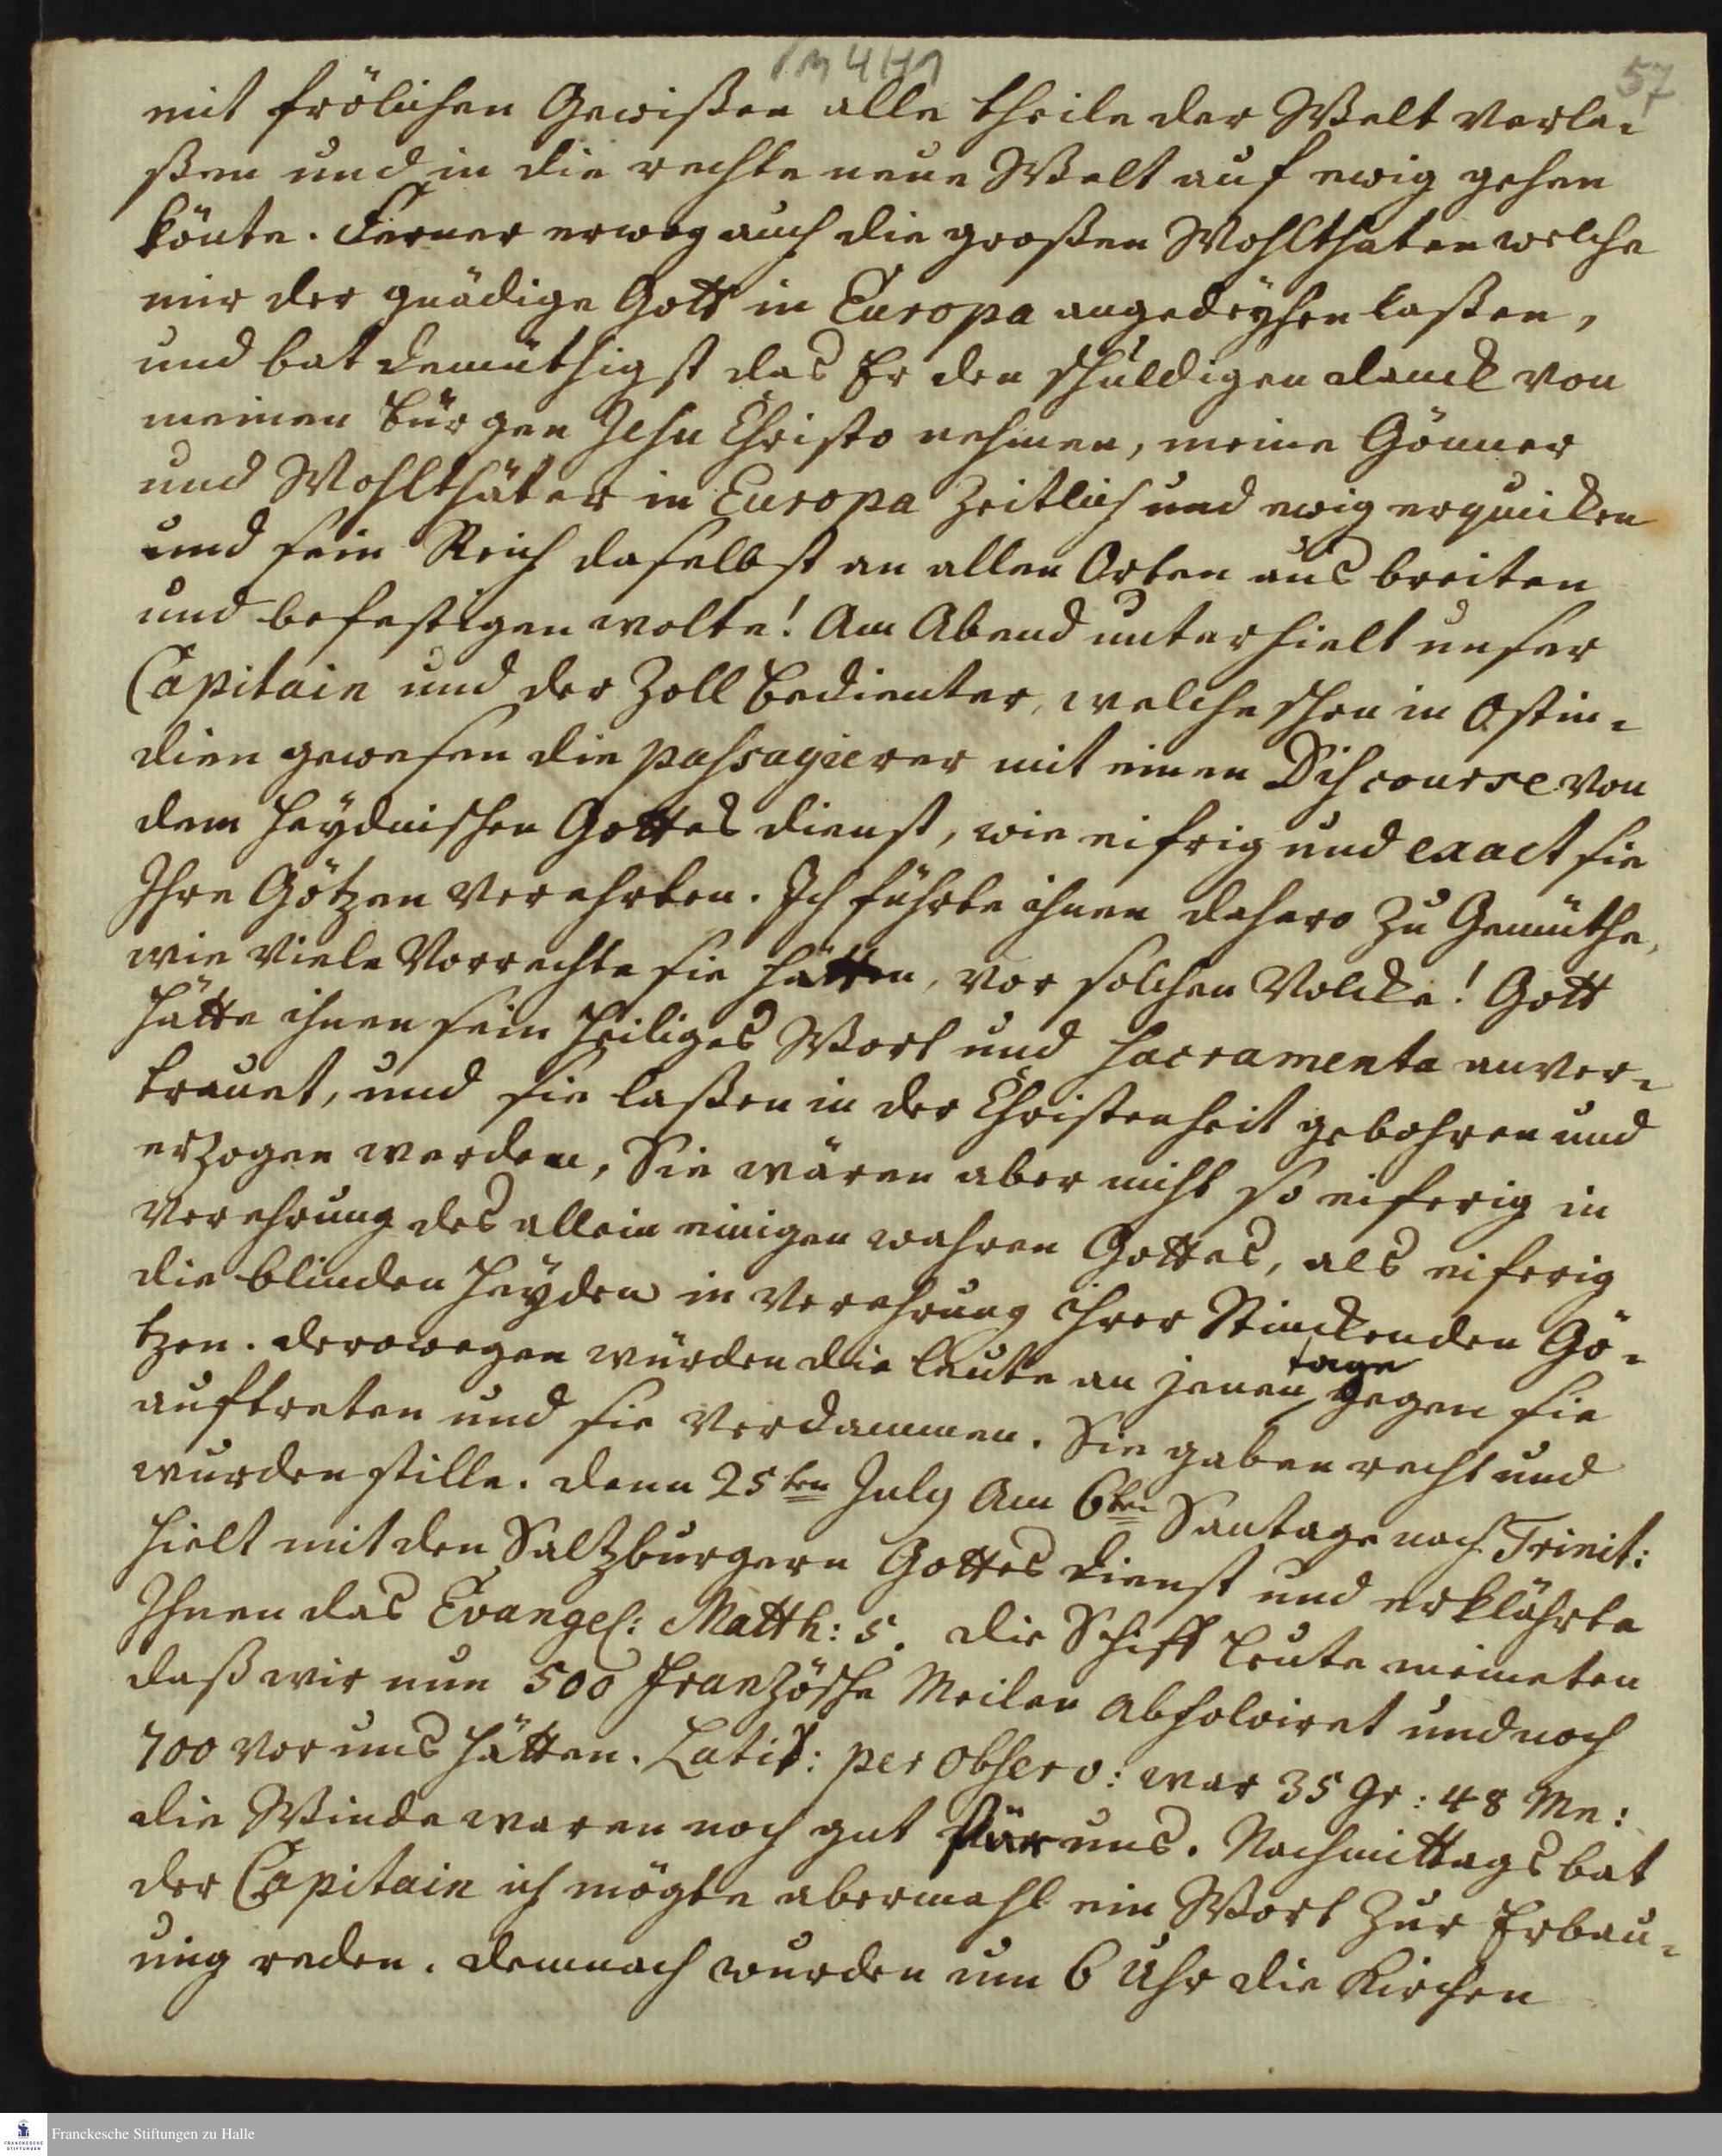 57
mit frölichen Gewißen alle theile der Welt verla-
ßen und in die rechte neue Welt auf ewig gehen
könte. Ferner erwog auch die großen Wohlthaten welche
mir der gnädige Gott in Europa angedeyhen laßen,
und bat demüthigst das Er den schuldigen danck von
meinen bürgen Jesu Christo nehmen, meine Gönner
und Wohlthäter in Europa zeitlich und ewig erquicken
und sein Reich daselbst an allen Orten aus breiten
und befestigen wolte! Am Abend unterhielt unser
Capitain und der Zoll bedienter, welche schon in Ostin-
dien gewesen die passagierer mit einen Discourse von
dem Heydnischen Gottes dienst, wie eifrig und exact sie
Ihre Götzen verehrten. Ich führte ihnen dahero zu Gemüthe,
wie viele Vorrechte sie hätten, vor solchen Volcke! Gott
hätte ihnen sein Heiliges Wort und sacramenta anver-
trauet, und sie laßen in der Christenheit gebohren und
erzogen werden, Sie wären aber nicht so eiferig in
Verehrung des allein einigen wahren Gottes, als eiferig
die blinden Heyden in Verehrung ihrer Stinckenden Gö-
tzen. derowegen würden die leute an jenen tage gegen sie
auftreten und sie verdammen. Sie gaben recht und
wurden stille. denn 25ten July Am 6ten Santage nach Trinit:
hielt mit den Saltzburgern Gottes dienst und erklährte
Ihnen das Evangel: Matth: 5. die Schiff leute meineten
daß wir nun 500 Französche Meilen absolviret und noch
700 vor uns hätten. Latit: per Observ: war 35 Gr: 48 Mn:
die Winde waren noch gut für uns. Nachmittags bat
der Capitain ich mögte abermahl ein Wort zur Erbau-
ung reden. demnach wurden um 6 Uhr die Kirchen
Franckesche Stiftungen zu Halle